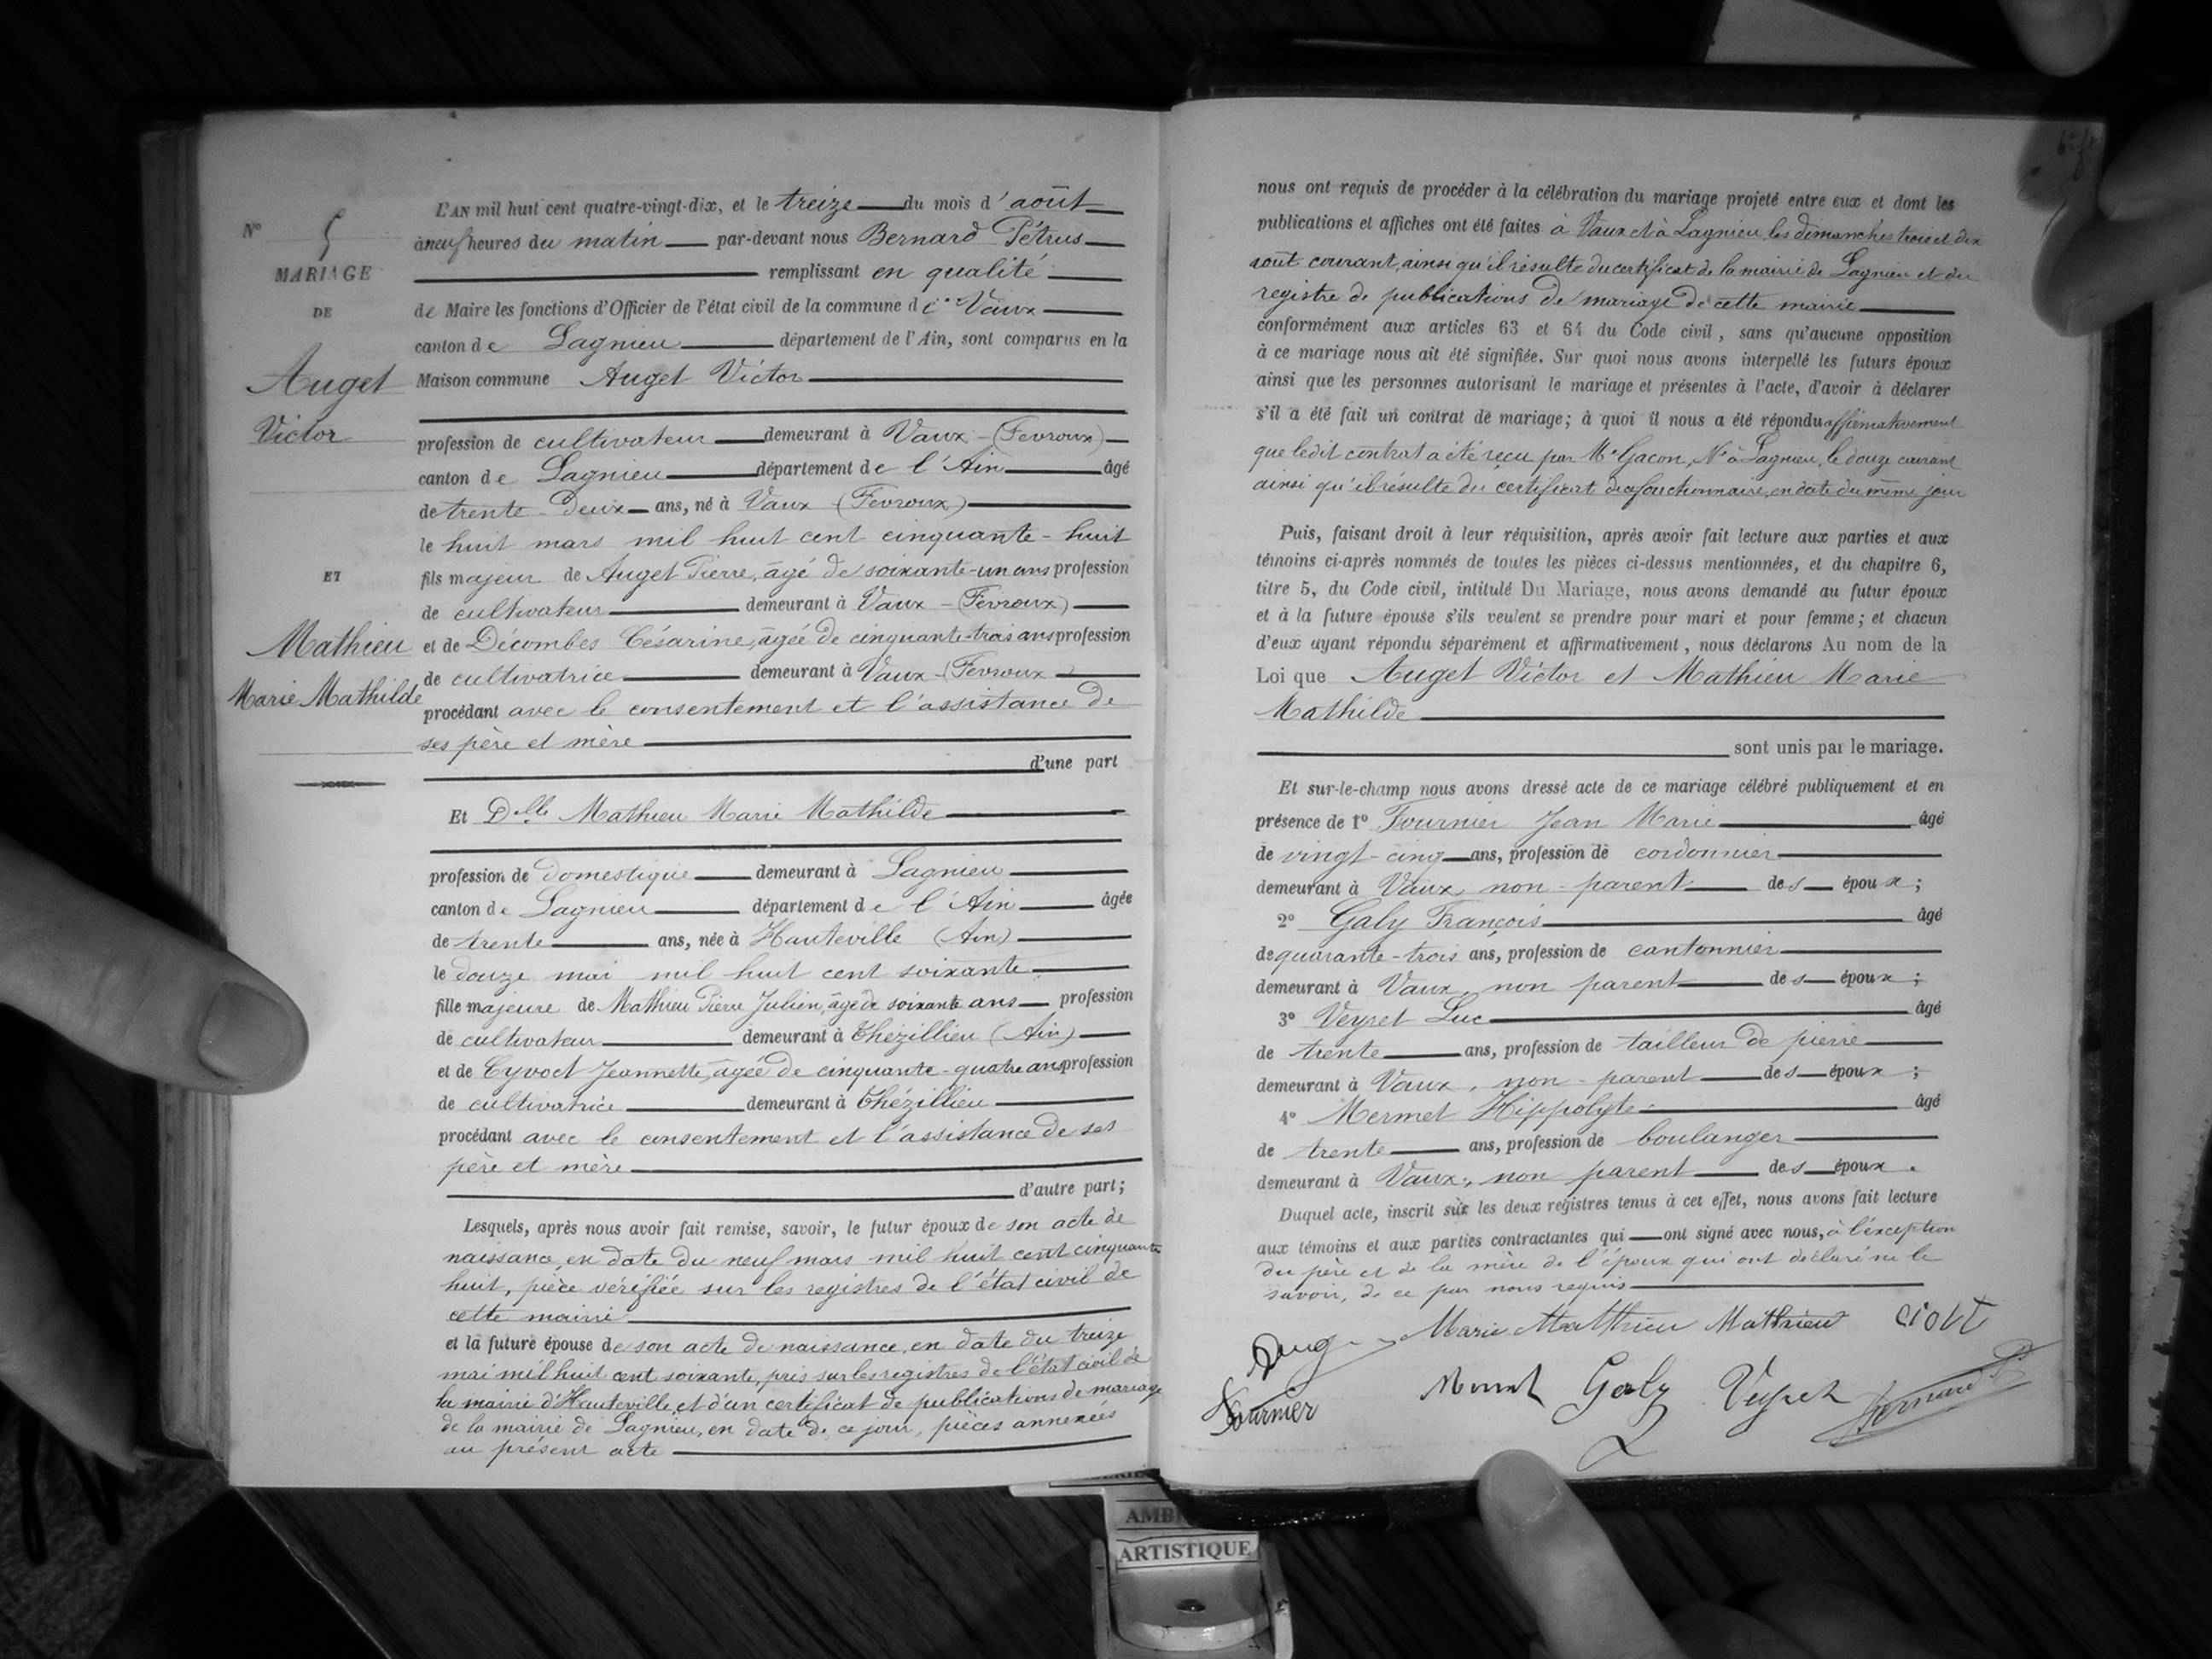 N° 5
MARIAGE
DE
Auget
Victor
ET
Mathieu
Marie Mathilde
L'AN mil huit cent quatre-vingt-dix, et le treize du mois d'août
à neuf heures du matin par-devant nous Bernard Pétrus
remplissant en qualité
de Maire les fonctions d'Officier de l'état civil de la commune de Vaux
canton de Lagnieu département de l'Ain, sont comparus en la
Maison commune Auget Victor
profession de cultivateur demeurant à Vaux - (Fevroux)
canton de Lagnieu département de l'Ain âgé
de trente-deux ans, né à Vaux (Fevroux)
le huit mars mil huit cent cinquante-huit
fils majeur de Auget Pierre, âgé de soixante-un ans profession
de cultivateur demeurant à Vaux - (Fevroux)
et de Décombes Césarine, âgée de cinquante-trois ans profession
de cultivatrice demeurant à Vaux - (Fevroux)
procédant avec le consentement et l'assistance de
ses père et mère
d'une part
Et Delle Mathieu Marie Mathilde
profession de domestique demeurant à Lagnieu
canton de Lagnieu département de l'Ain âgée
de trente ans, née à Hauteville (Ain)
le douze mai mil huit cent soixante
fille majeure de Mathieu Pierre Julien, âgé de soixante ans profession
de cultivateur demeurant à Thézillieu (Ain)
et de Cyvoct Jeannette, âgée de cinquante-quatre ans profession
de cultivatrice demeurant à Thézillieu
procédant avec le consentement et l'assistance de ses
père et mère
d'autre part;
Lesquels, après nous avoir fait remise, savoir, le futur époux de son acte de
naissance, en date du neuf mars mil huit cent cinquante
huit, pièce vérifiée sur les registres de l'état civil de
cette mairie
et la future épouse de son acte de naissance, en date du treize
mai mil huit cent soixante, pris sur les registres de l'état civil de
la mairie d'Hauteville et d'un certificat de publications de mariage
de la mairie de Lagnieu, en date de ce jour, pièces annexées
au présent acte
nous ont requis de procéder à la célébration du mariage projeté entre eux et dont les
publications et affiches ont été faites à Vaux et à Lagnieu, les dimanches trois et dix
août courant, ainsi qu'il résulte du certificat de la mairie de Lagnieu et du
registre de publications de mariage de cette mairie
conformément aux articles 63 et 64 du Code civil, sans qu'aucune opposition
à ce mariage nous ait été signifiée. Sur quoi nous avons interpellé les futurs époux
ainsi que les personnes autorisant le mariage et présentes à l'acte, d'avoir à déclarer
s'il a été fait un contrat de mariage; à quoi il nous a été répondu affirmativement
que ledit contrat a été reçu par Me Gacon, Nre à Lagnieu, le douze courant
ainsi qu'il résulte du certificat de ce fonctionnaire, en date du même jour
Puis, faisant droit à leur réquisition, après avoir fait lecture aux parties et aux
témoins ci-après nommés de toutes les pièces ci-dessus mentionnées, et du chapitre 6,
titre 5, du Code civil, intitulé Du Mariage, nous avons demandé au futur époux
et à la future épouse s'ils veulent se prendre pour mari et pour femme; et chacun
d'eux ayant répondu séparément et affirmativement, nous déclarons Au nom de la
Loi que Auget Victor et Mathieu Marie
Mathilde
sont unis par le mariage.
Et sur-le-champ nous avons dressé acte de ce mariage célébré publiquement et en
présence de 1° Fournier Jean Marie âgé
de vingt-cinq ans, profession de cordonnier
demeurant à Vaux, non-parent des époux;
2° Galy François âgé
de quarante-trois ans, profession de cantonnier
demeurant à Vaux, non parent des époux;
3° Veyret Luc âgé
de trente ans, profession de tailleur de pierre
demeurant à Vaux, non-parent des époux;
4° Mermet Hippolyte âgé
de trente ans, profession de boulanger
demeurant à Vaux, non parent des époux.
Duquel acte, inscrit sur les deux registres tenus à cet effet, nous avons fait lecture
aux témoins et aux parties contractantes qui ont signé avec nous, à l'exception
du père et de la mère de l'époux qui ont déclaré ne le
savoir, de ce par nous requis
Marie Matthieu Mathieu
Galy Veyret Bernard P.
Fournier
ARTISTIQUE